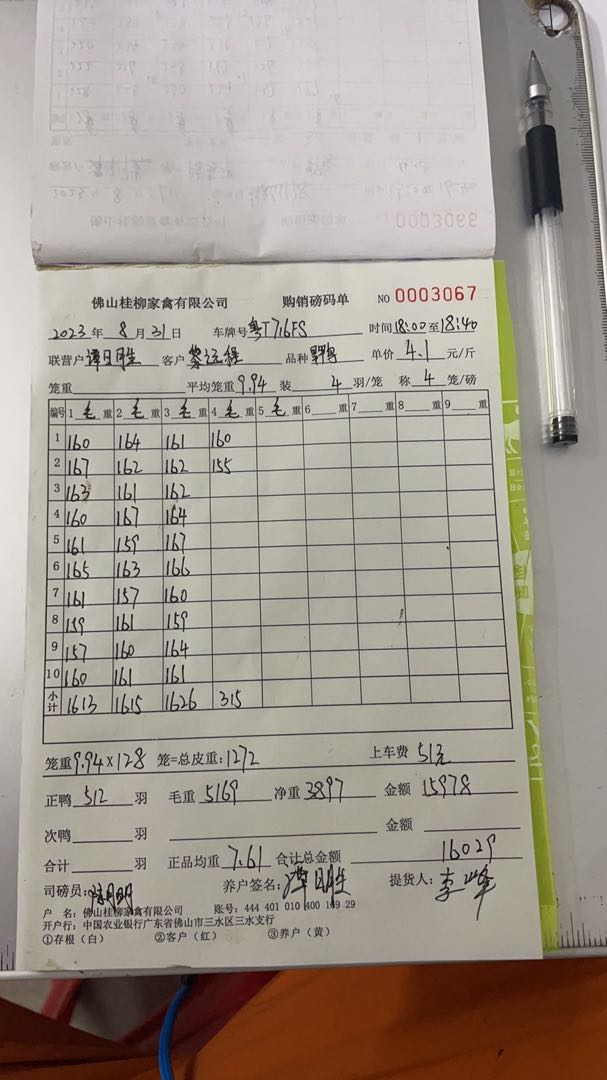 佛山桂柳家禽有限公司 购销磅码单 NO 0003067
2023 年 8 月 31 日 车牌号 粤T716FS 时间 18:00 至 18:40
联营户 谭日胜 客户 黎远程 品种 单价 4.1 元/斤
笼重 平均笼重 9.94 装 4 羽/笼 称 4 笼/磅
编号 1 毛 重 2 毛 重 3 毛 重 4 毛 重 5 毛 重 6 重 7 重 8 重 9 重
1 160 164 161 160
2 167 162 162 155
3 163 161 162
4 160 167 164
5 161 159 167
6 165 163 166
7 161 157 160
8 159 161 159
9 157 160 164
10 160 161 161
小计 1613 1615 1626 315
笼重 9.94×128 笼=总皮重: 1272 上车费 51元
正鸭 512 羽 毛重 5169 净重 3897 金额 15978
次鸭 羽 金额
合计 羽 正品均重 7.61 合计总金额 16029
司磅员: 养户签名: 谭日胜 提货人: 李峰
户 名: 佛山桂柳家禽有限公司 账号: 444 401 010 400 169 29
开户行: 中国农业银行广东省佛山市三水区三水支行
①存根（白） ②客户（红） ③养户（黄）